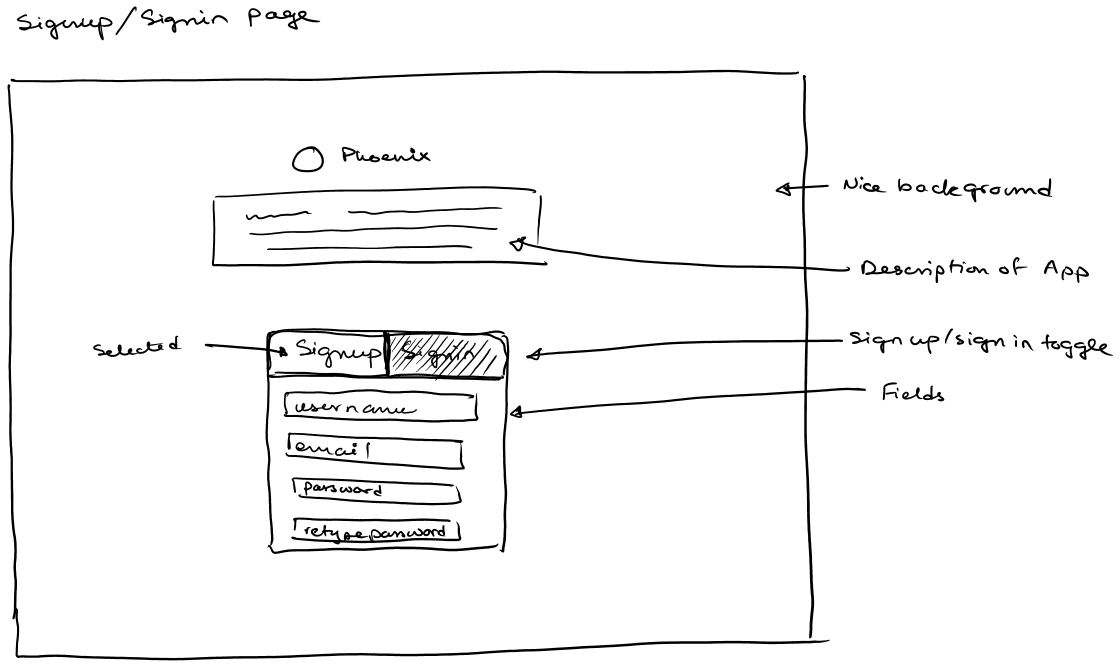 Signup/Signin Page
Phoenix
Nice background
Description of App
Selected
Signup
Signin
Sign up/sign in toggle
Fields
username
email
password
retype password